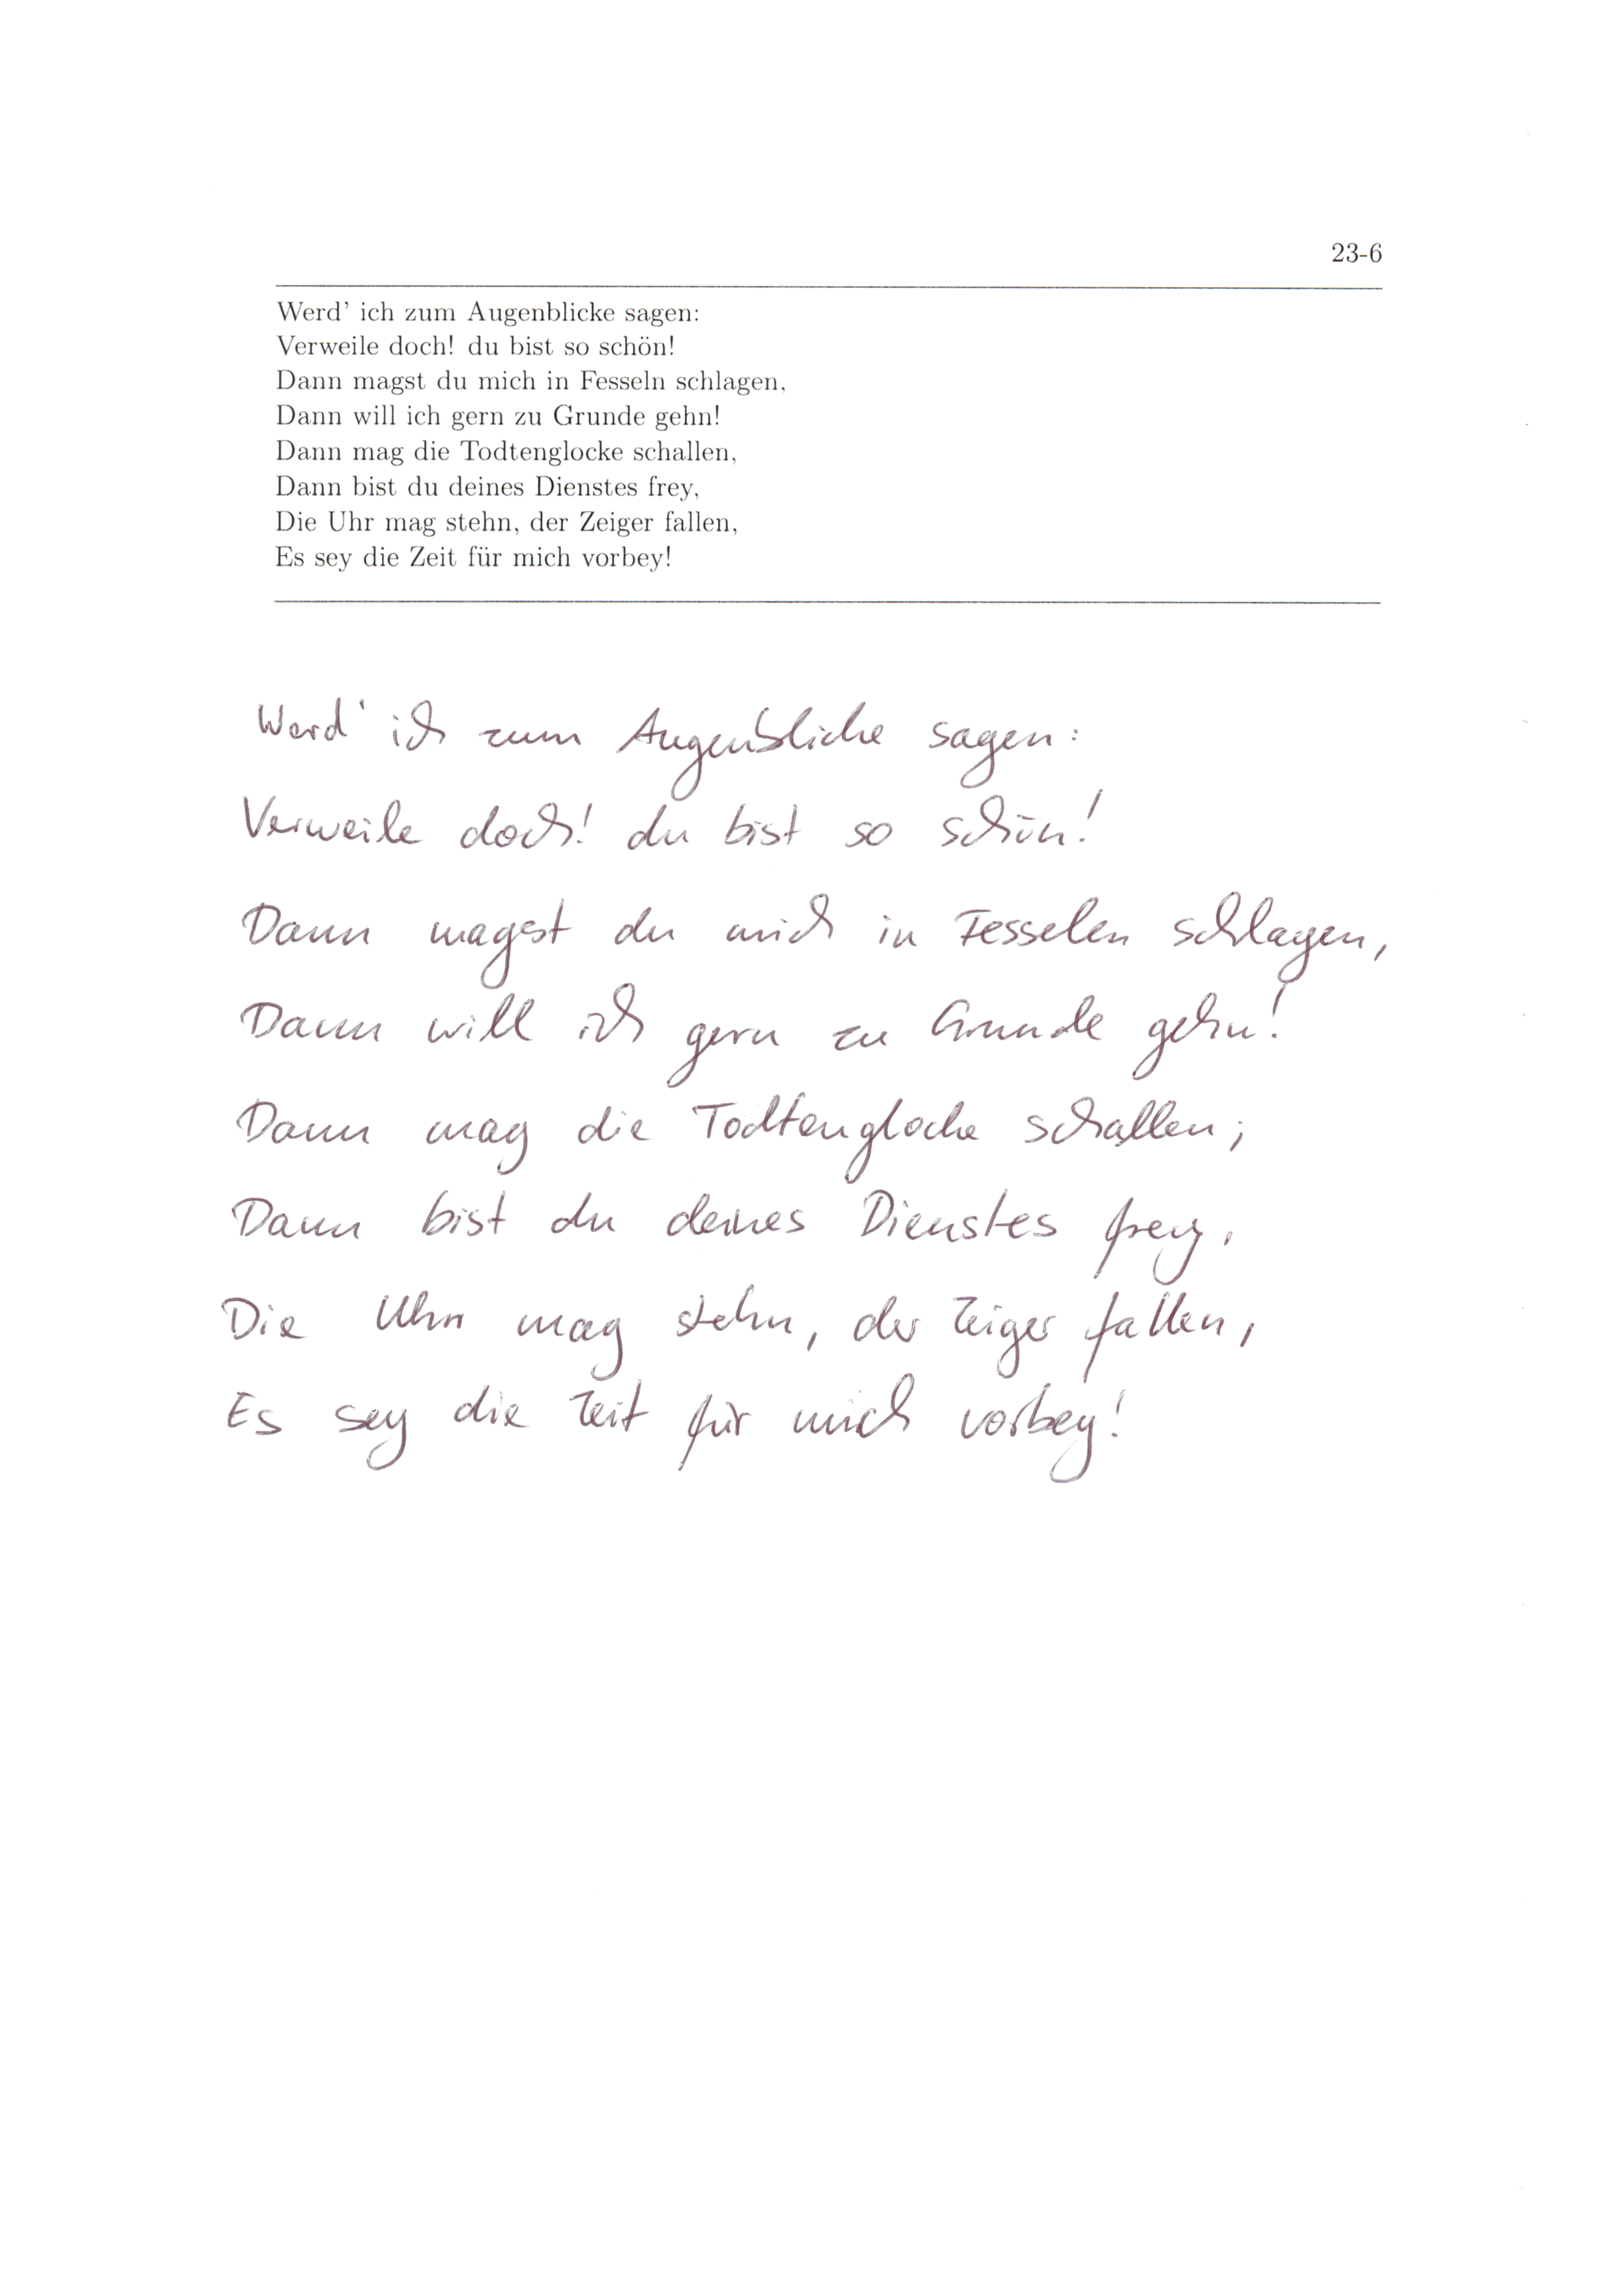 23-6
Werd' ich zum Augenblicke sagen:
Verweile doch! du bist so schön!
Dann magst du mich in Fesseln schlagen,
Dann will ich gern zu Grunde gehn!
Dann mag die Todtenglocke schallen,
Dann bist du deines Dienstes frey,
Die Uhr mag stehn, der Zeiger fallen,
Es sey die Zeit für mich vorbey!
Werd' ich zum Augenblicke sagen:
Verweile doch! du bist so schön!
Dann magst du mich in Fesselen schlagen,
Dann will ich gern zu Grunde gehn!
Dann mag die Todtenglocke schallen;
Dann bist du deines Dienstes frey,
Die Uhr mag stehn, der Zeiger fallen,
Es sey die Zeit für mich vorbey!